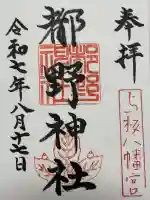 奉拝
与板八幡宮
都野神社
令和七年八月十七日